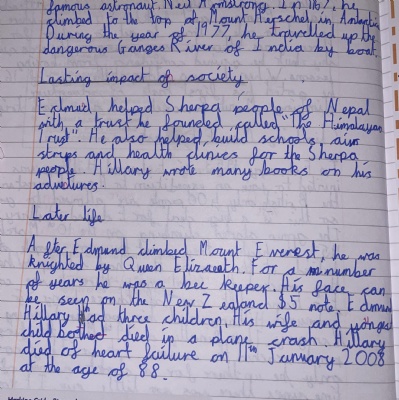 famous astronaut Neil Armstrong. In 1967, he
climbed to the top of Mount Herschel in Antartic
During the year of 1977, he travelled up the
dangerous Ganges River of India by boat.
Lasting impact of society
Edmund helped Sherpa people of Nepal
with a trust he founded called "The Himalayan
Trust". He also helped build schools, air
strips and health clinics for the Sherpa
people. Hillary wrote many books on his
adventures.
Later life
After Edmund climbed Mount Everest, he was
knighted by Queen Elizabeth. For a number
of years he was a bee keeper. His face can
be seen on the New Zealand $5 note. Edmund
Hillary had three children. His wife and younges
child bothed died in a plane crash. Hillary
died of heart failure on 11th January 2008
at the age of 88.